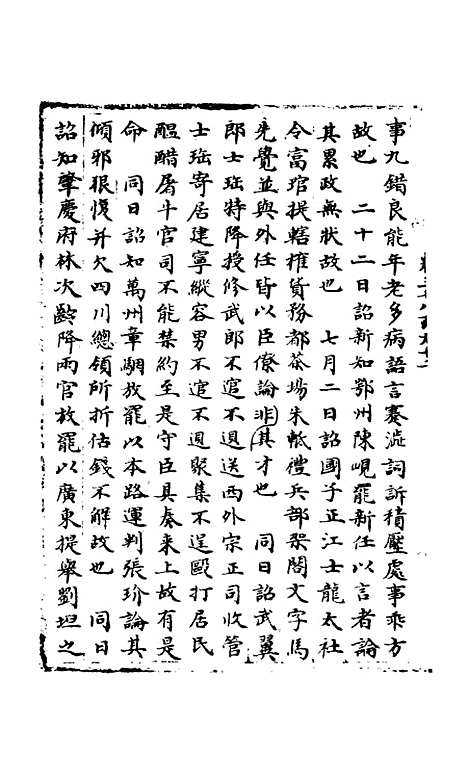 事九錯良能年老多病語言蹇澁詞訴積壓處事乖方
故也　二十二日詔新知鄂州陳峴罷新任以言者論
其累政無狀故也　七月二日詔國子正江士龍太社
令富琯提轄榷貨務都茶場朱軧禮兵部架閣文字馬
先覺並與外任皆以臣僚論非其才也　同日詔武翼
郎士珸特降授修武郎不𨓆不𢓇送西外宗正司收管
士珸寄居建寧縱容男不𨓆不𢓇聚集不逞毆打居民
醖醋屠牛官司不能禁約至是守臣具奏来上故有是
命　同日詔知萬州章騆放罷以本路運判張玠論其
傾邪狠愎并欠四川總領所折估錢不解故也　同日
詔知肇慶府林次齡降兩官放罷以廣東提舉劉坦之